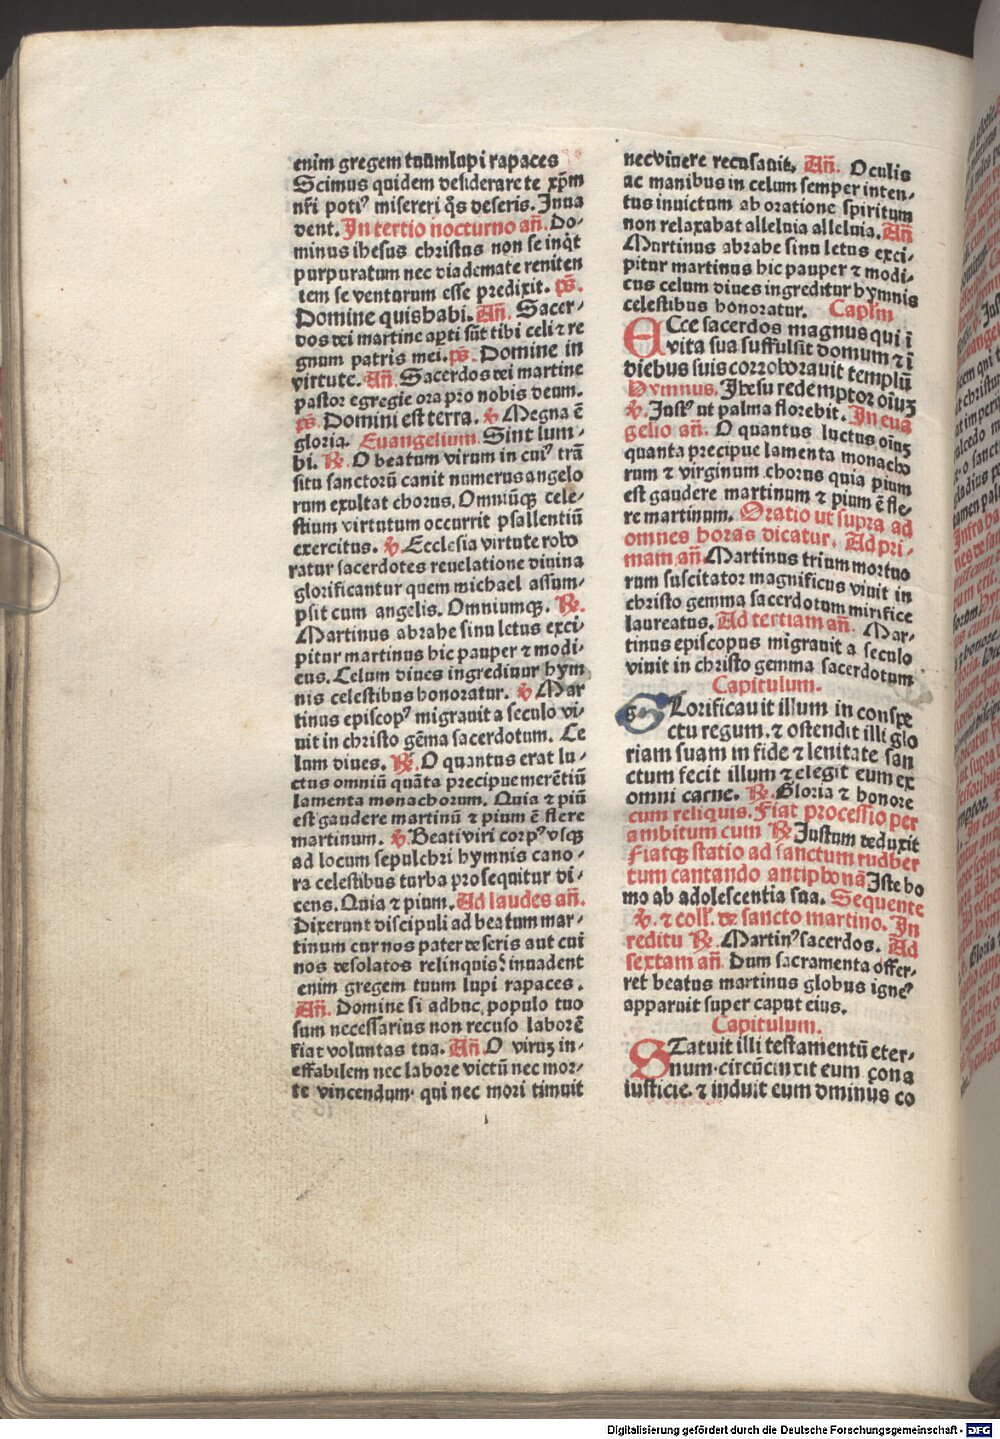 enim gregem tuũm lupi rapaces
Scimus quidem desiderare te xp̃m
nr̃i potiꝰ misereri q̃s deseris. Inua
dent. In tertio nocturno añ. Do-
minus ihesus christus non se inq̃t
purpuratum nec diademate reniten
tem se venturum esse predixit. ps̃.
Domine quis habi. Añ. Sacer-
dos dei martine ap̱ti sũt tibi celi ⁊ re
gnum patris mei. ps̃. Domine in
virtute. Añ. Sacerdos dei martine
pastor egregie ora pro nobis deum.
ps̃. Domini est terra. ℣ Megna ẽ
gloria. Euangelium. Sint lum-
bi. ℟. O beatum virum in cuiꝰ trã
situ sanctorũ canit numerus angelo
rum exultat chorus. Omniũqꝫ cele-
stium virtutum occurrit psallentiũ
exercitus. ℣. Ecclesia virtute robo
ratur sacerdotes reuelatione diuina
glorificantur quem michael assum-
psit cum angelis. Omniumqꝫ. ℟.
Martinus abrahe sinu letus exci-
pitur martinus hic pauper ⁊ modi-
cus. Celum diues ingreditur hym
nis celestibus honoratur. ℣ Mar
tinus episcopꝰ migrauit a seculo vi-
uit in christo gẽma sacerdotum. Ce
lum diues. ℟. O quantus erat lu-
ctus omniũ quãta precipue merẽtiũ
lamenta monachorum. Quia ⁊ piũ
est gaudere martinũ ⁊ pium ẽ flere
martinum. ℣. Beati viri corpꝰ vsqꝫ
ad locum sepulchri hymnis cano-
ra celestibus turba prosequitur di-
cens. Quia ⁊ pium. Ad laudes añ.
Dixerunt discipuli ad beatum mar-
tinum cur nos pater deseris aut cui
nos desolatos relinquis? inuadent
enim gregem tuum lupi rapaces.
Añ. Domine si adhuc populo tuo
sum necessarius non recuso laborẽ
fiat voluntas tua. Añ. O viruꝫ in-
effabilem nec labore victũ nec mor-
te vincendum· qui nec mori timuit
nec viuere recusauit. Añ. Oculis
ac manibus in celum semper inten-
tus inuictum ab oratione spiritum
non relaxabat alleluia alleluia. Añ
Martinus abrahe sinu letus exci-
pitur martinus hic pauper ⁊ modi-
cus celum diues ingreditur hymnis
celestibus honoratur. Capl̃m
ECce sacerdos magnus qui ĩ
vita sua suffulsit domum ⁊ ĩ
diebus suis corroborauit templũ
Hymnus. Ihesu redemptor oĩuꝫ
℣. Iustꝰ ut palma florebit. In eua
gelio añ. O quantus luctus oĩuꝫ
quanta precipue lamenta monacho
rum ⁊ virginum chorus quia pium
est gaudere martinum ⁊ pium ẽ fle-
re martinum. Oratio ut supra ad
omnes horas dicatur. Ad pri-
mam añ Martinus trium mortuo
rum suscitator magnificus viuit in
christo gemma sacerdotum mirifice
laureatus. Ad tertiam añ. Mar-
tinus episcopus migrauit a seculo
viuit in christo gemma sacerdotum
Capitulum.
GLorificauit illum in conspe
ctu regum. ⁊ ostendit illi glo
riam suam in fide ⁊ lenitate san
ctum fecit illum ⁊ elegit eum ex
omni carne. ℟. Gloria ⁊ honore
cum reliquis. Fiat processio per
ambitum cum ℟ Iustum deduxit
Fiatqꝫ statio ad sanctum rudber
tum cantando antiphonã Iste ho
mo ab adolescentia sua. Sequente
℣. ⁊ coll̃. de sancto martino. In
reditu ℟. Martinꝰ sacerdos. Ad
sextam añ Dum sacramenta offer-
ret beatus martinus globus igneꝰ
apparuit super caput eius.
Capitulum.
STatuit illi testamentũ eter-
num· circũcinxit eum çona
iusticie. ⁊ induit eum dominus co
Digitalisierung gefördert durch die Deutsche Forschungsgemeinschaft - DFG